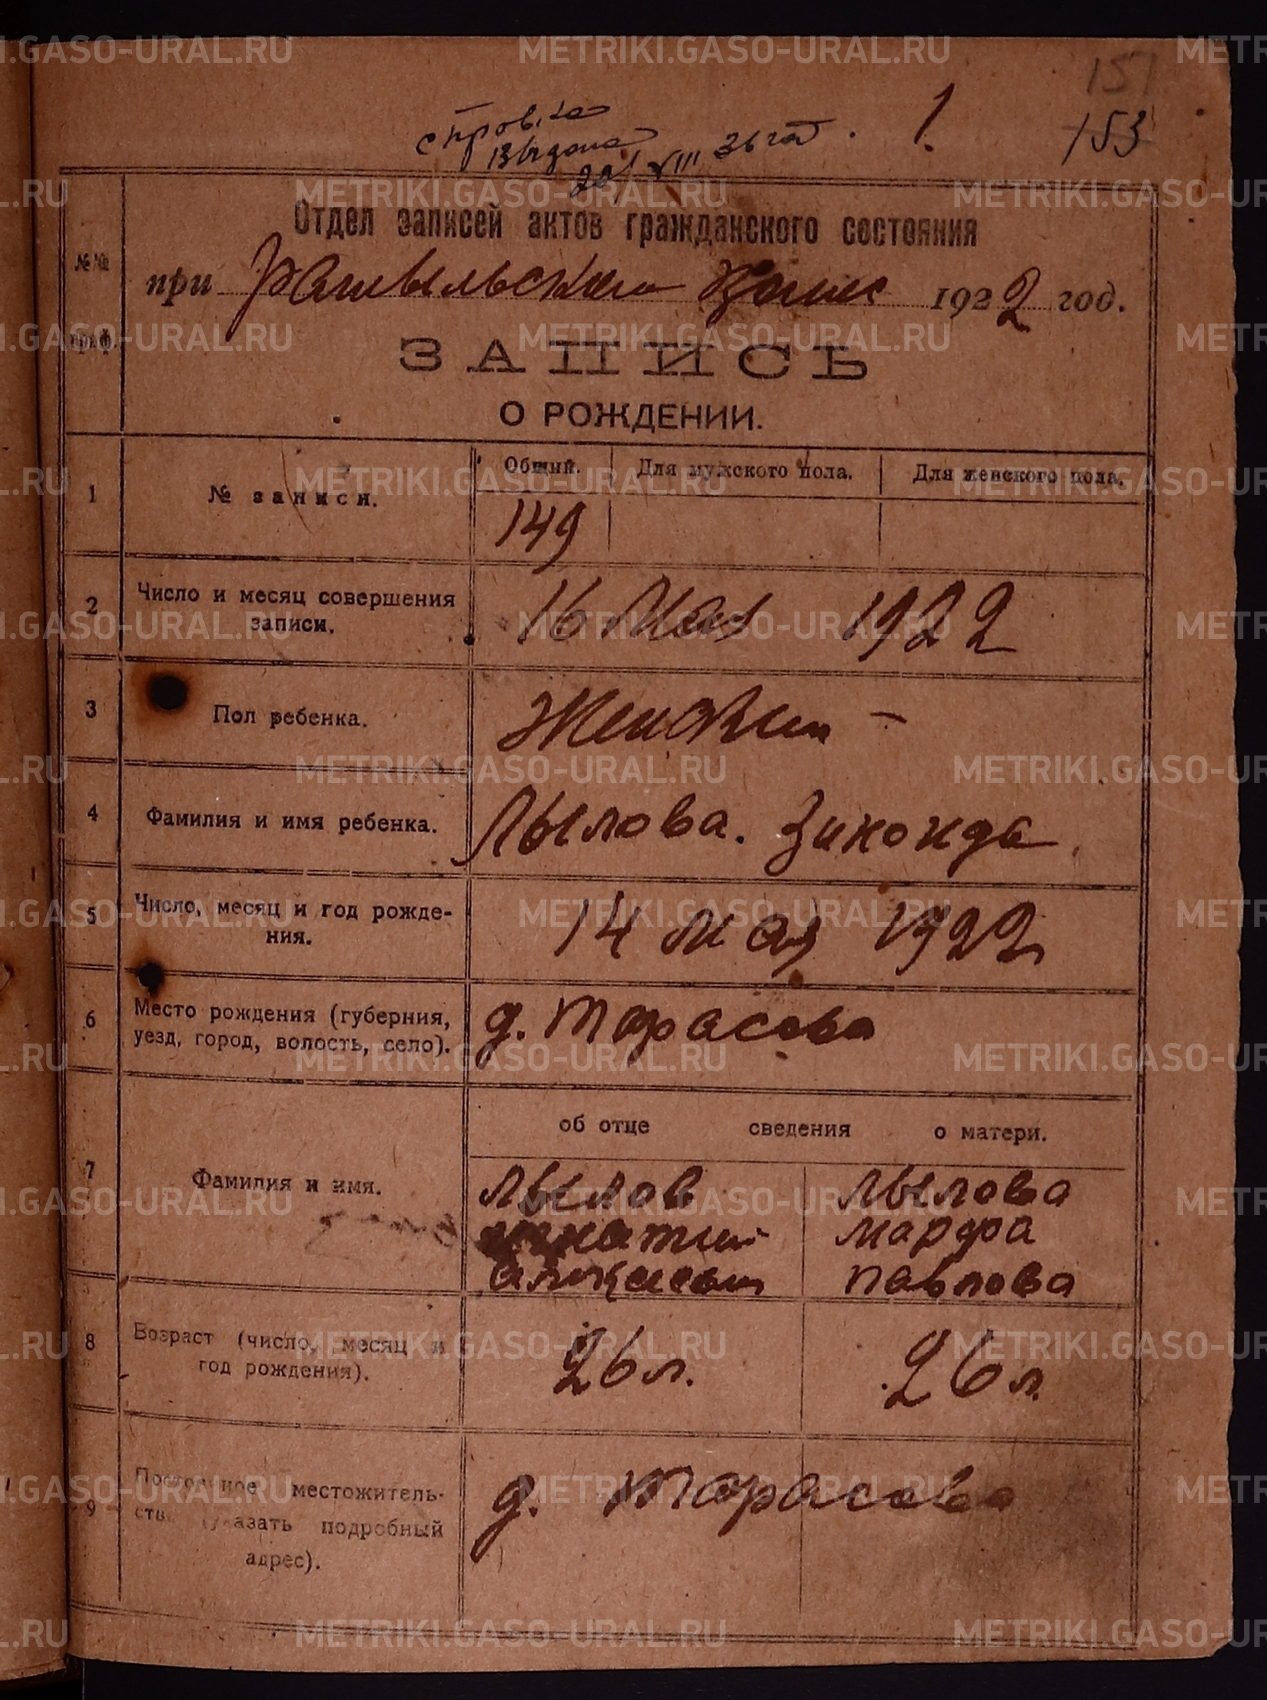 151
153
1.
справка
выдана
20/VIII 36 год.
Отдел записей актов гражданского состояния
№№
граф.
при Рамыльском Загсе 1922 год.
ЗАПИСЬ
О РОЖДЕНИИ.
1
№ записи.
Общий. Для мужского пола. Для женского пола.
149
2
Число и месяц совершения
записи.
16 Мая 1922
3
Пол ребенка.
4
Фамилия и имя ребенка.
Лылова. Зиноида
5
Число, месяц и год рожде-
ния.
14 мая 1922
6
Место рождения (губерния,
уезд, город, волость, село).
д. Тарасова
об отце сведения о матери.
7
Фамилия и имя.
Лылов
Игнатий
Алексеевич
Лылова
Марфа
Павлова
8
Возраст (число, месяц и
год рождения).
26 л.
26 л.
9
Постоянное местожитель-
ство (указать подробный
адрес).
д. Тарасова
METRIKI.GASO-URAL.RU